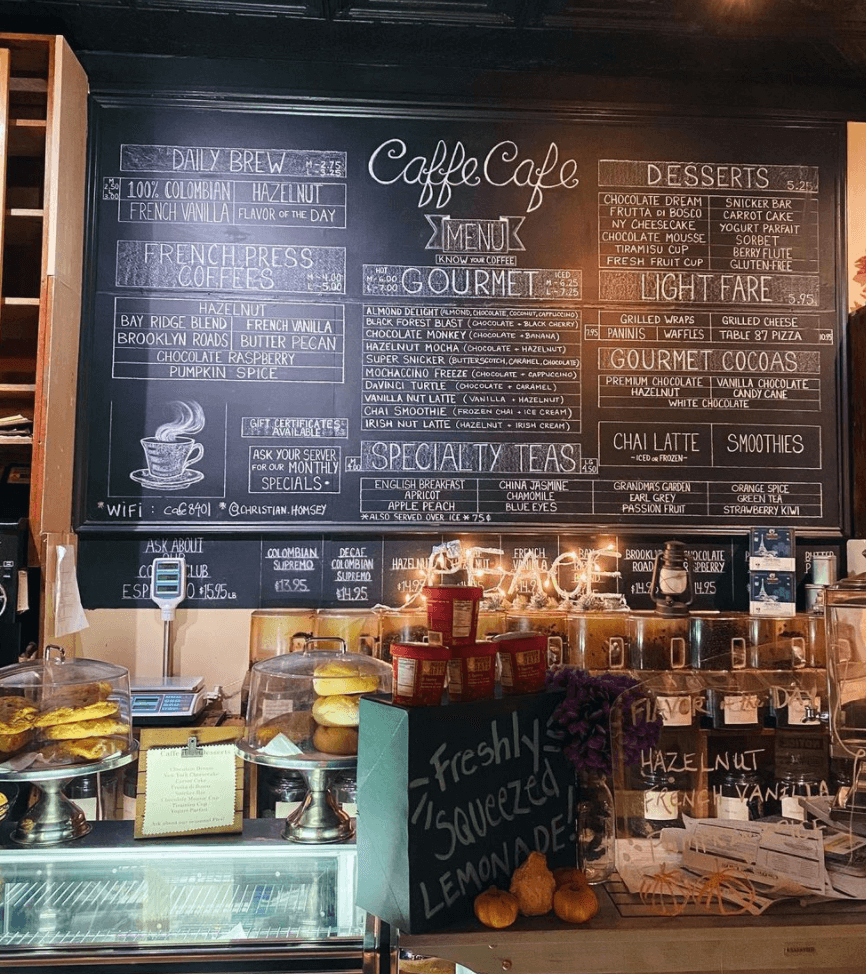 DAILY BREW M-2.75
L-3.25
M 2.50 L 3.00
100% COLOMBIAN HAZELNUT
FRENCH VANILLA FLAVOR OF THE DAY
FRENCH PRESS
COFFEES M-4.00
L-5.00
HAZELNUT
BAY RIDGE BLEND FRENCH VANILLA
BROOKLYN ROADS BUTTER PECAN
CHOCOLATE RASPBERRY
PUMPKIN SPICE
GIFT CERTIFICATES
AVAILABLE
ASK YOUR SERVER
FOR OUR MONTHLY
SPECIALS
*WIFI: cafe8401 *@CHRISTIAN.HOMSEY
Caffe Cafe
MENU
KNOW YOUR COFFEE
HOT
M-6.00
L-7.00
GOURMET
ICED
M-6.25
L-7.25
ALMOND DELIGHT (ALMOND, CHOCOLATE, COCONUT, CAPPUCCINO)
BLACK FOREST BLAST (CHOCOLATE + BLACK CHERRY)
CHOCOLATE MONKEY (CHOCOLATE + BANANA)
HAZELNUT MOCHA (CHOCOLATE + HAZELNUT)
SUPER SNICKER (BUTTERSCOTCH, CARAMEL, CHOCOLATE)
MOCHACCINO FREEZE (CHOCOLATE + CAPPUCCINO)
DAVINCI TURTLE (CHOCOLATE + CARAMEL)
VANILLA NUT LATTE (VANILLA + HAZELNUT)
CHAI SMOOTHIE (FROZEN CHAI + ICE CREAM)
IRISH NUT LATTE (HAZELNUT + IRISH CREAM)
SPECIALTY TEAS L 4.50
ENGLISH BREAKFAST CHINA JASMINE GRANDMA'S GARDEN ORANGE SPICE
APRICOT CHAMOMILE EARL GREY GREEN TEA
APPLE PEACH BLUE EYES PASSION FRUIT STRAWBERRY KIWI
*ALSO SERVED OVER ICE * 75¢
DESSERTS 5.25
CHOCOLATE DREAM SNICKER BAR
FRUTTA DI BOSCO CARROT CAKE
NY CHEESECAKE YOGURT PARFAIT
CHOCOLATE MOUSSE SORBET
TIRAMISU CUP BERRY FLUTE
FRESH FRUIT CUP GLUTEN-FREE
LIGHT FARE 5.95
GRILLED WRAPS GRILLED CHEESE
7.95 PANINIS WAFFLES TABLE 87 PIZZA 10.95
GOURMET COCOAS
PREMIUM CHOCOLATE VANILLA CHOCOLATE
HAZELNUT CANDY CANE
WHITE CHOCOLATE
CHAI LATTE SMOOTHIES
~ICED OR FROZEN~
ASK ABOUT
OUR
CLUB
$15.95 LB
COLOMBIAN
SUPREMO
$13.95
DECAF
COLOMBIAN
SUPREMO
$14.95
HAZELNUT
$14.95
FRENCH
BROOKLYN
14.95
CHOCOLATE
14.95
Freshly
SQUEEZED
LEMONADE!
FLAVOR OF THE DAY
HAZELNUT
FRENCH VANILLA